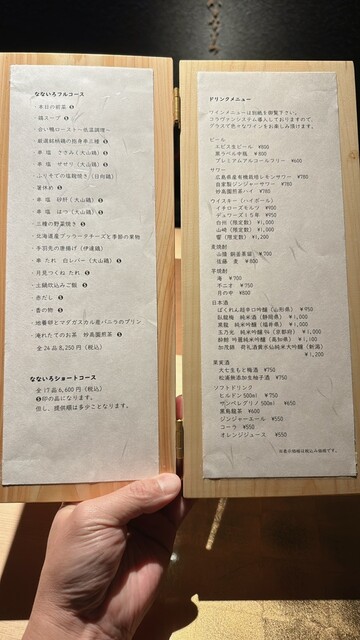 なないろフルコース
・本日の前菜 S
・鶏スープ S
・合い鴨ロースト～低温調理～
・厳選銘柄鶏の独身串三種 S
・串 塩 ささみく(大山鶏)
・串 塩 せせり(大山鶏)
・ふりそでの塩麹焼き(日向鶏)
・箸休め S
・串 塩 砂肝(大山鶏) S
・串 塩 はつ(大山鶏) S
・三種の野菜焼き S
・北海道産ブッラータチーズと季節の果物
・手羽先の唐揚げ(伊達鶏)
・串 たれ 白レバー(大山鶏) S
・月見つくね たれ S
・土鍋炊込みご飯 S
・赤だし S
・香の物 S
・地養卵とマダガスカル産バニラのプリン
・淹れたてのお茶 妙高園煎茶 S
全24品8,250円(税込)
なないろショートコース
全17品6,600円(税込)
S印の品になります。
但し、提供順は多少ことなります。
ドリンクメニュー
ワインメニューは別紙を御覧下さい。
コラヴァンシステム導入しておりますので、
グラスで色々なワインをお楽しみ頂けます。
ビール
ヱビス生ビール ¥800
黒ラベル中瓶 ¥800
プレミアムアルコールフリー ¥600
サワー
広島県産有機栽培レモンサワー ¥780
自家製ジンジャーサワー ¥780
妙高園煎茶ハイ ¥780
ウイスキー(ハイボール)
イチローズモルツ ¥900
デュワーズ15年 ¥950
白州(限定数) ¥1,000
山崎(限定数) ¥1,000
響(限定数) ¥1,200
麦焼酎
山猿 ¥700
佐藤 麦 ¥800
芋焼酎
海 ¥700
不二才 ¥750
月の中 ¥800
日本酒
ばくれん超辛口吟醸(山形県) ¥950
臥龍梅 純米酒(静岡県) ¥1,000
黒龍 純米吟醸(福井県) ¥1,000
玉乃光 純米吟醸(京都府) ¥1,000
酔鯨 吟麗純米吟醸(高知県) ¥1,100
加茂錦 荷札酒黄水仙純米大吟醸(新潟)
¥1,200
果実酒
大七生もと梅酒 ¥750
松浦無添加生柚子酒 ¥750
ソフトドリンク
ヒルドン500ml ¥750
サンペレグリノ500ml ¥650
黒烏龍茶 ¥600
ジンジャーエール ¥550
コーラ ¥550
オレンジジュース ¥550
※表示価格は税込み価格です。